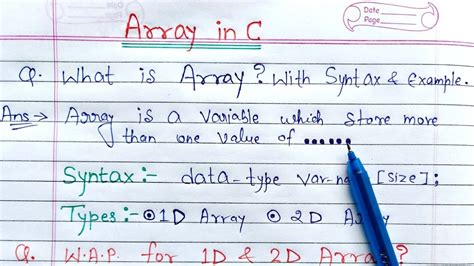 Array in C
Date
Page
Q. What is Array? With Syntax & Example.
Ans → Array is a variable which store more
than one value of ......
Syntax:- data-type var-na [size];
Types:- ⊙1D Array ⊙ 2D A
Q. W.A.P. for 1D & 2D Array?